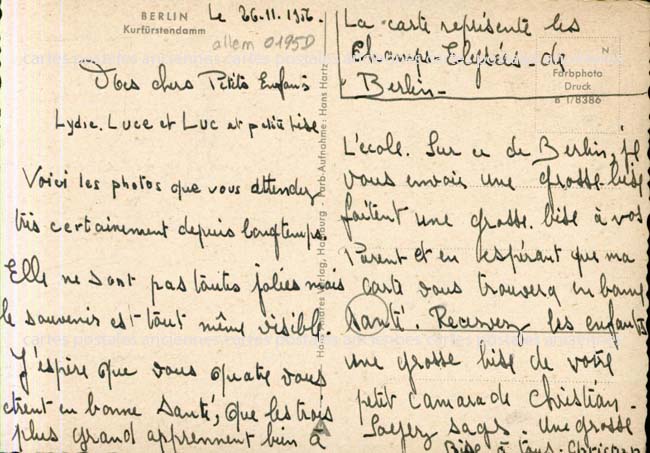 BERLIN
Kurfürstendamm
Le 26.11.1956.
allem 0195D
Mes chers Petits Enfants
Lydie. Luce et Luc et petite lise
Voici les photos que vous attendez
très certainement depuis longtemps.
Elle ne sont pas toutes jolies mais
le souvenir est tout même visible
J'espère que vous quatre vous
etent en bonne santé, que les trois
plus grand apprennent bien à
Hamburg - Farb-Aufnahme: Hans Hartz
La carte représente les
Champs Elysées - de
Berlin -
N
Farbphoto
Druck
B 1/8386
L'ecole. Sur ce de Berlin, je
vous envois une grosse bise
faitent une grosse bise à vos
Parent et en espérant que ma
carte vous trouvera en bonne
santé. Recevez les enfants
une grosse bise de votre
petit camarade Christian -
Soeyez sages. Une grosse
Bise à tous.
cartes postales anciennes cartes postales anciennes cartes postales anciennes
cartes postales anciennes cartes postales anciennes cartes postales anciennes